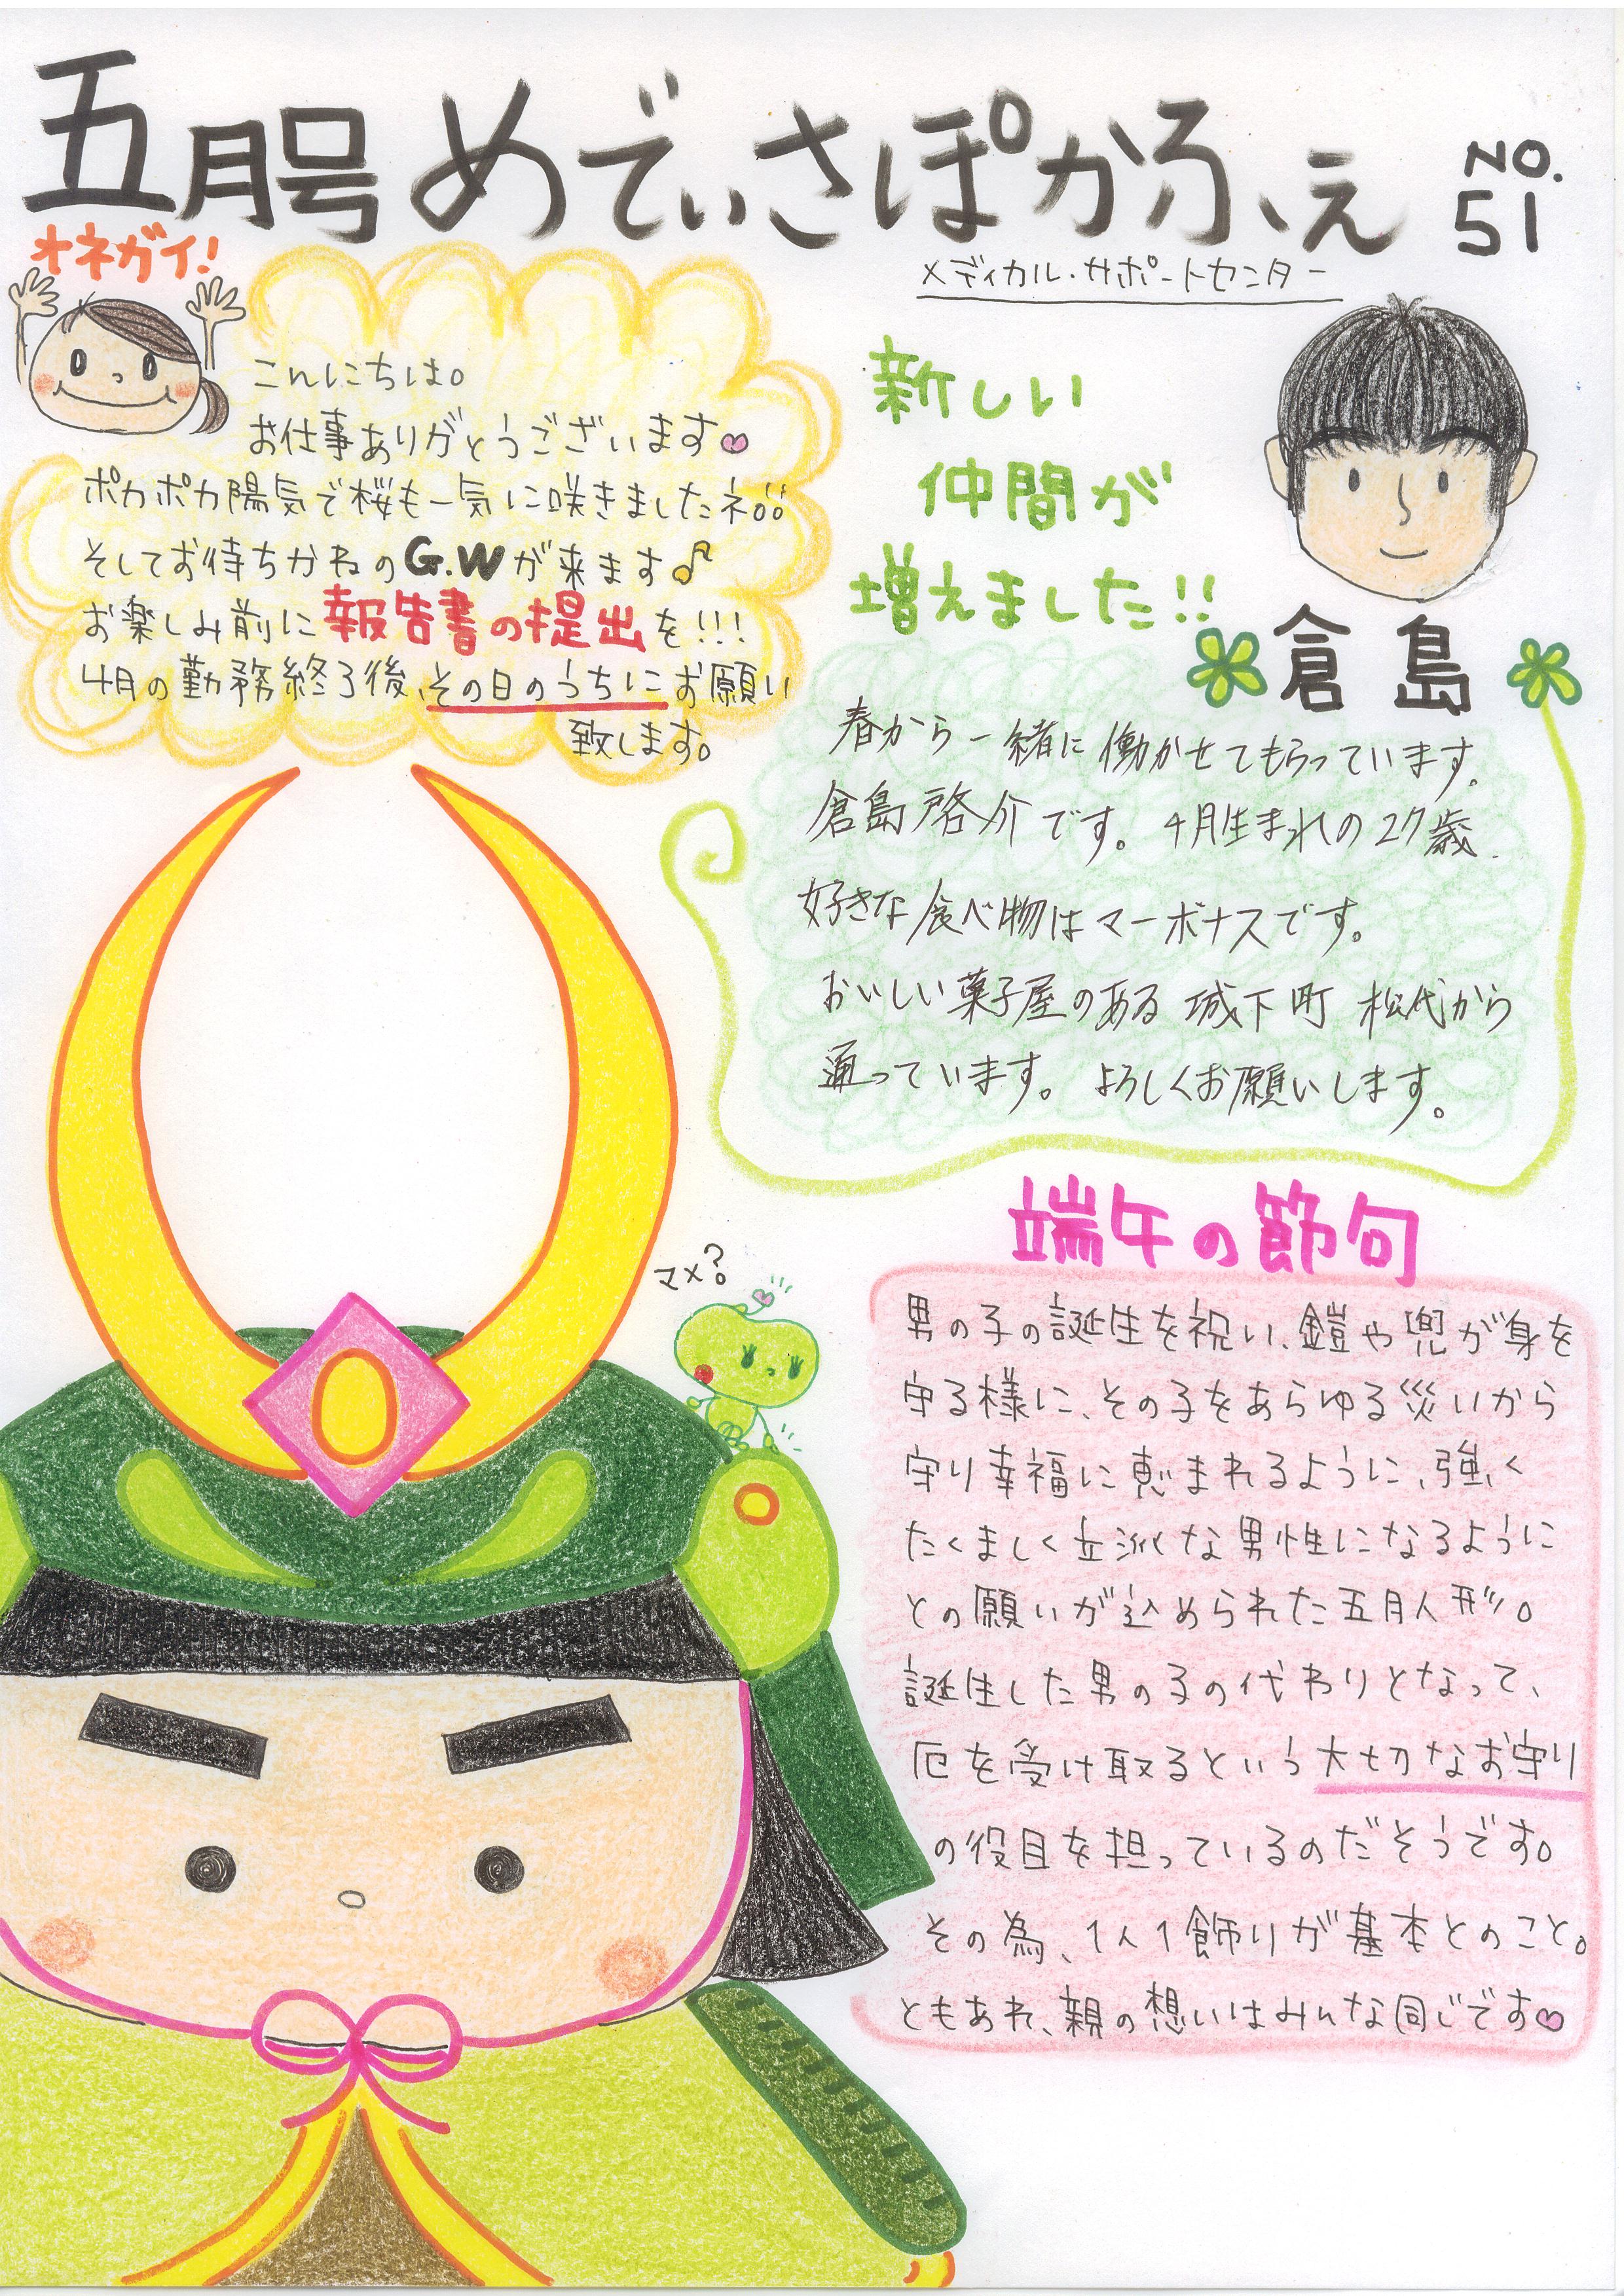 五月号 めでぃさぽかふぇ NO.51
メディカル・サポートセンター
オネガイ!
こんにちは。
お仕事ありがとうございます
ポカポカ陽気で桜も一気に咲きましたネ
そしてお待ちかねのG.Wが来ます♪
お楽しみ前に報告書の提出を!!!
4月の勤務終了後、その日のうちにお願い
致します。
新しい
仲間が
増えました!!
倉島
春から一緒に働かせてもらっています。
倉島啓介です。4月生まれの27歳。
好きな食べ物はマーボナスです。
おいしい菓子屋のある城下町 松代から
通っています。よろしくお願いします。
マメ?
端午の節句
男の子の誕生を祝い、鎧や兜が身を
守る様に、その子をあらゆる災いから
守り幸福に恵まれるように、強く
たくましく立派な男性になるように
との願いが込められた五月人形。
誕生した男の子の代わりとなって、
厄を受け取るという大切なお守り
の役目を担っているのだそうです。
その為、1人1飾りが基本とのこと。
ともあれ、親の想いはみんな同じです♡